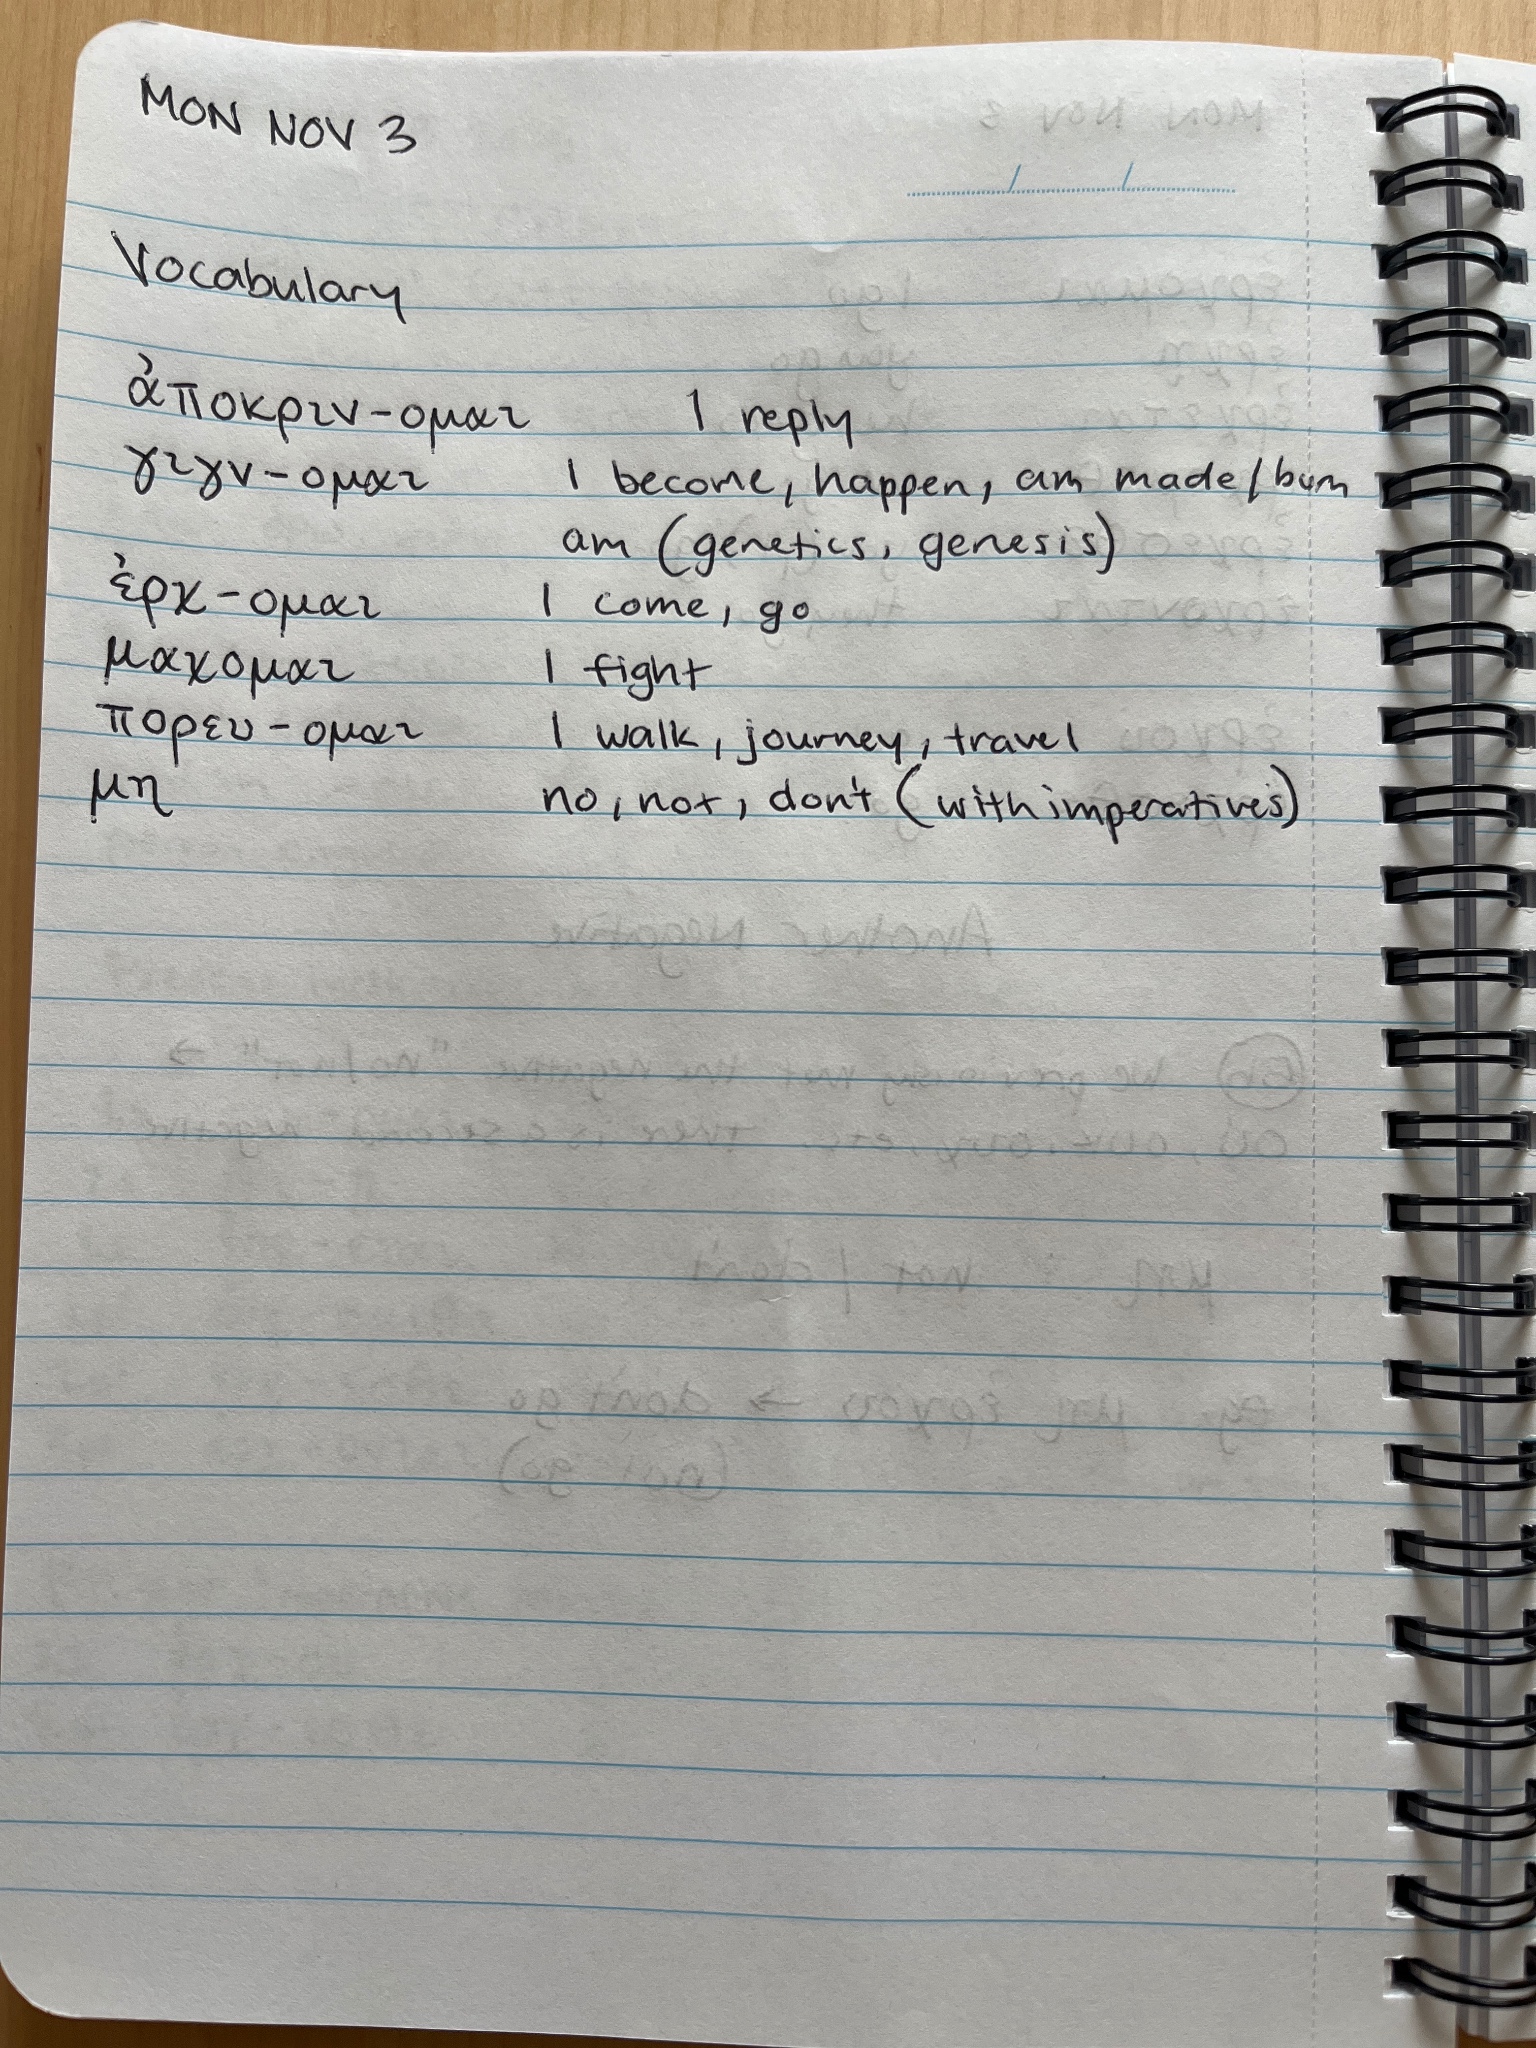 MON NOV 3
Vocabulary
ἀποκριν-ομαι I reply
γιγν-ομαι I become, happen, am made/born
am (genetics, genesis)
ἐρχ-ομαι I come, go
μαχομαι I fight
πορευ-ομαι I walk, journey, travel
μη no, not, don't (with imperatives)